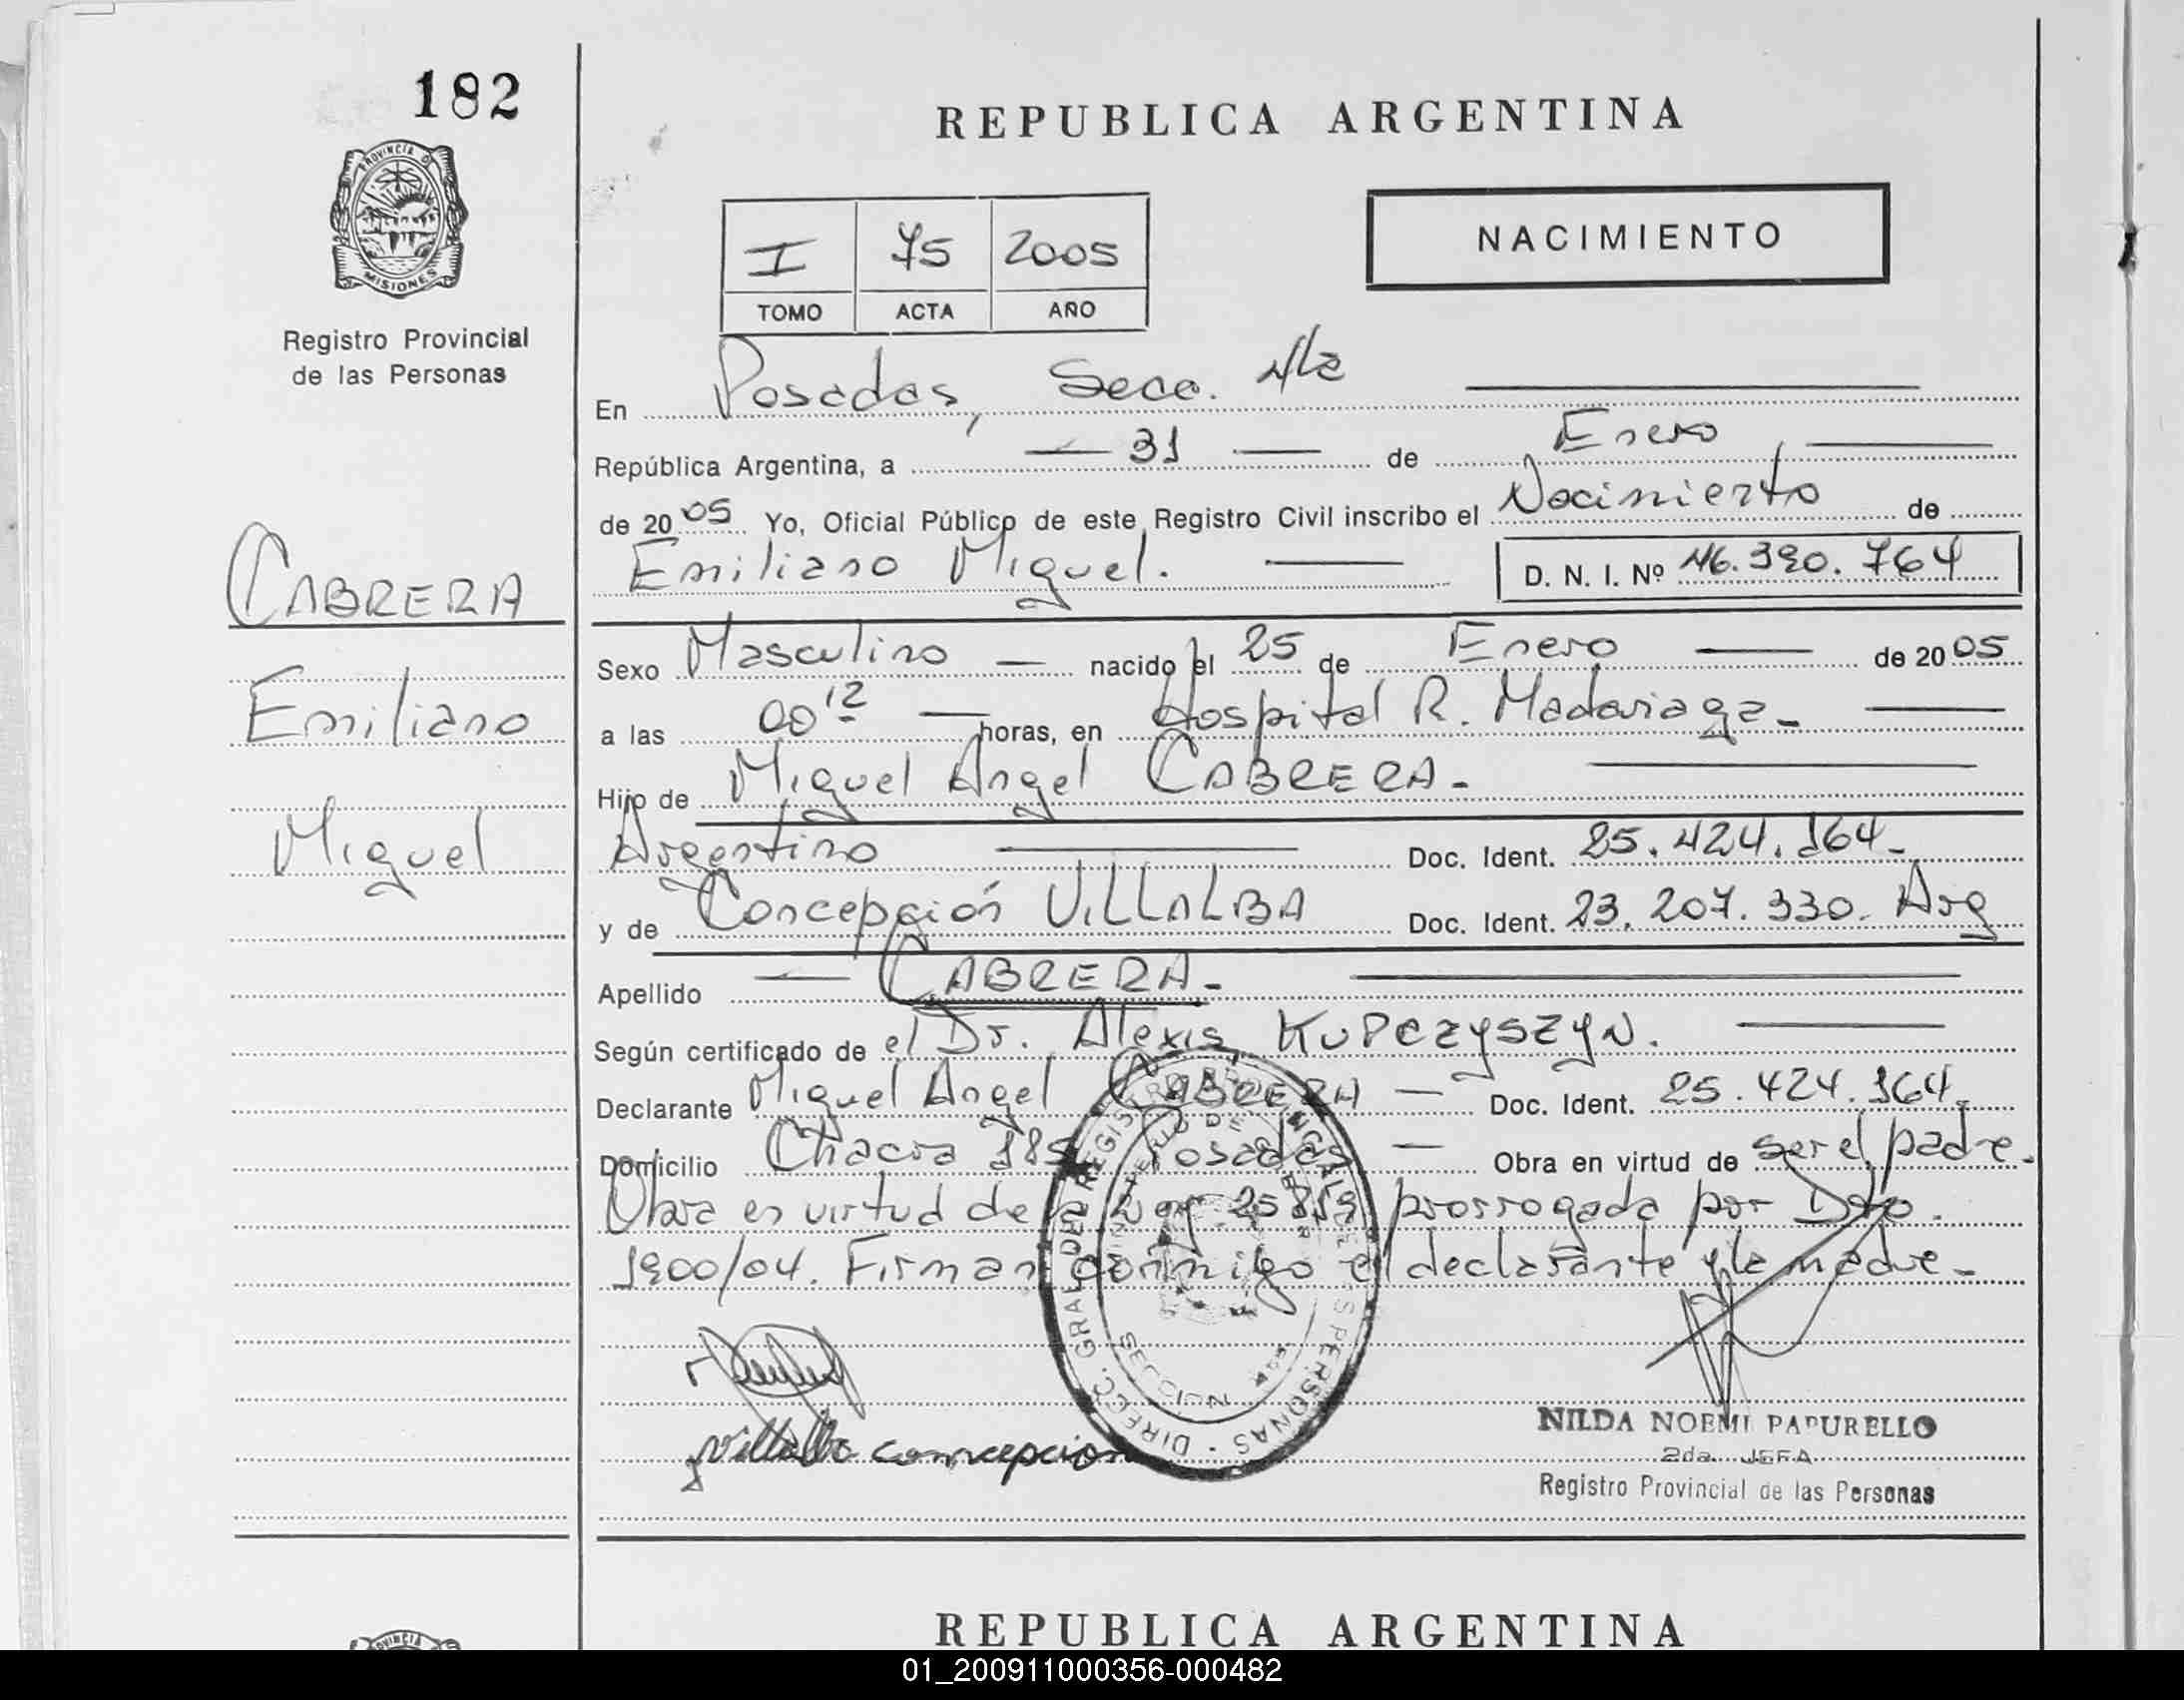 182
REPUBLICA ARGENTINA
PROVINCIA D
MISIONES
Registro Provincial
de las Personas
I 75 2005
TOMO ACTA AÑO
NACIMIENTO
En Posadas, Secc.
República Argentina, a — 31 — de Enero,
de 20 05 Yo, Oficial Público de este Registro Civil inscribo el Nacimiento de
Emiliano Miguel. D. N. I. Nº 46.390.764
CABRERA
Emiliano
Miguel
Sexo Masculino — nacido el 25 de Enero — de 20 05
a las 00 12 — horas, en Hospital R. Madariaga-
Hijo de Miguel Angel CABRERA-
Argentino Doc. Ident. 25.424.164-
y de Concepción VILLALBA Doc. Ident. 23.207.330. Arg
Apellido — CABRERA-
Según certificado de el Dr. Alexis KUPCZYSZYN.
Declarante Miguel Angel CABRERA — Doc. Ident. 25.424.164
Domicilio Chacra 185 Posadas — Obra en virtud de ser el padre.
Obra en virtud de la Ley 25819 prorrogada por Dto.
1900/04. Firman conmigo el declarante y la madre-
Villalba concepcion
DIRECC. GRAL. DEL REGISTRO PROVINCIAL DE LAS PERSONAS
NILDA NOEMI PAPURELLO
2da. JEFA
Registro Provincial de las Personas
REPUBLICA ARGENTINA
01_200911000356-000482